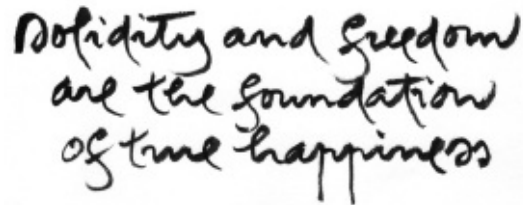 Solidity and freedom
are the foundation
of true happiness